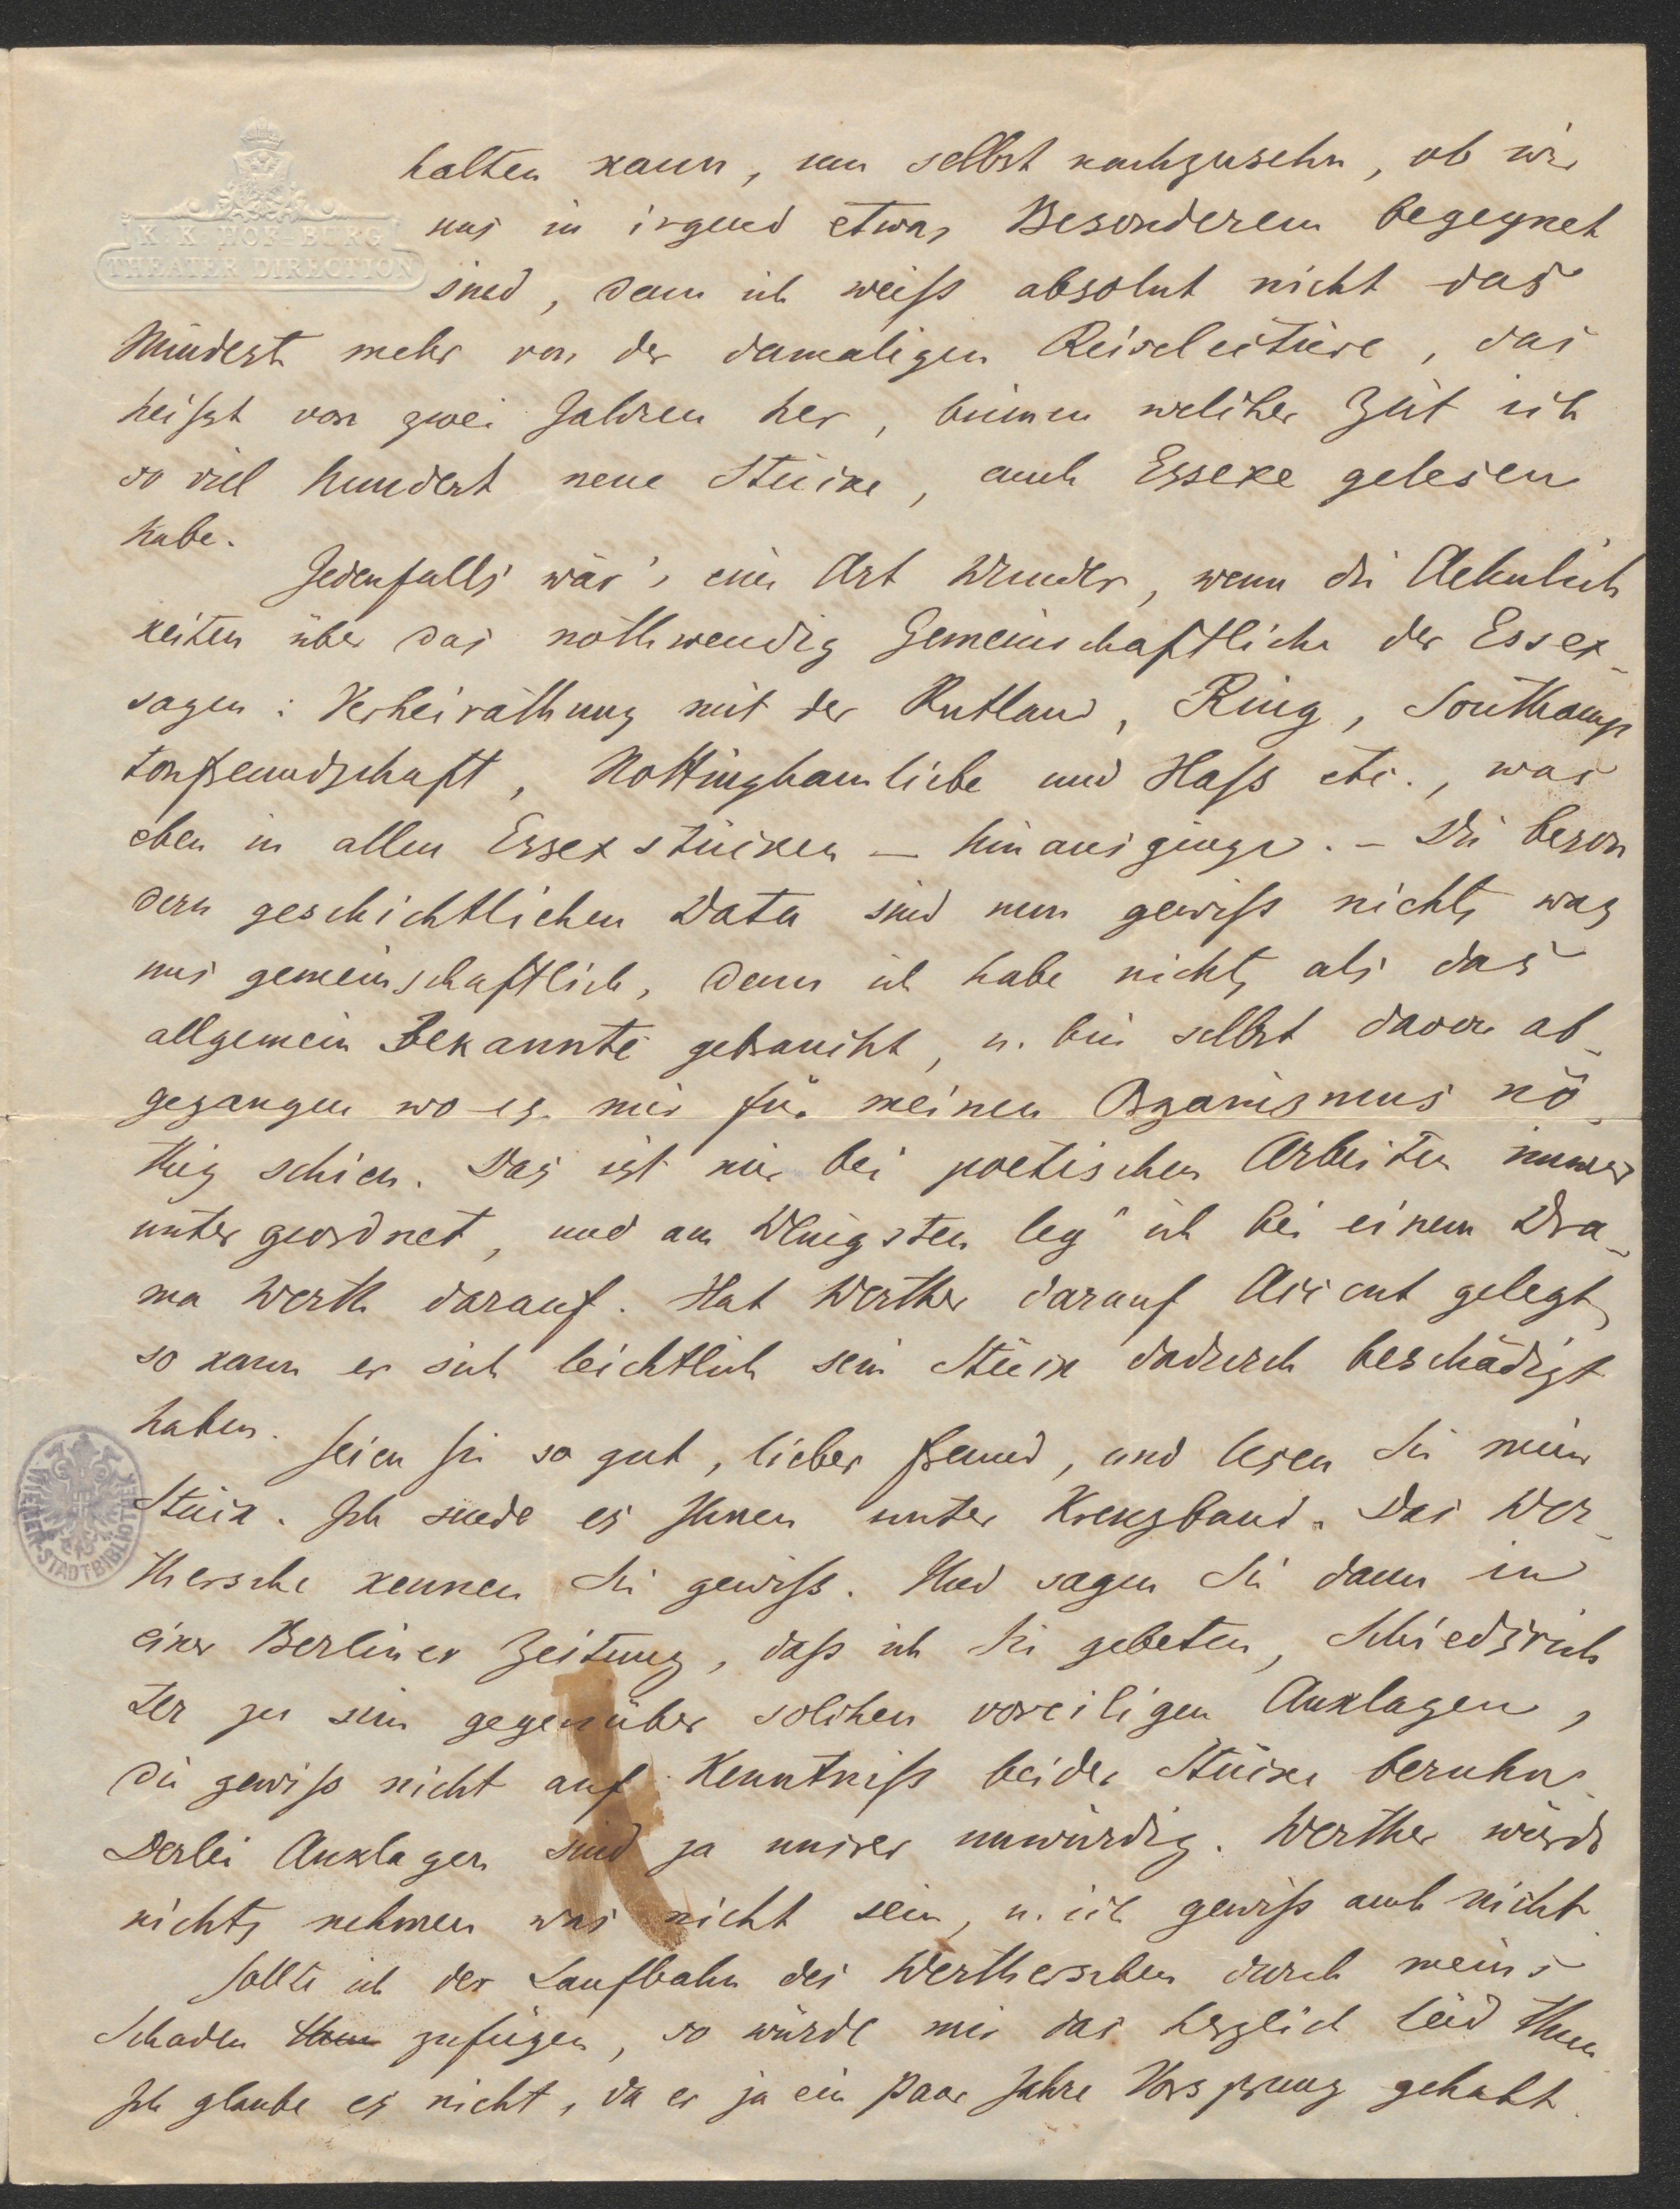 K. K. HOF BURG
THEATER DIRECTION
halten kann, um selbst nachzusehn, ob wir
uns in irgend etwas Besonderem begegnet
sind, denn ich weiss absolut nicht das
Mindeste mehr von der damaligen Reiselectüre, das
heisst von zwei Jahren her, binnen welcher Zeit ich
so viel hundert neue Stücke, auch Essexe gelesen
habe.
Jedenfalls wär's eine Art Wunder, wenn die Aehnlich
keiten über das nothwendig Gemeinschaftliche der Essex-
sagen: Verheirathung mit der Rutland, Ring, Southamp
tonfreundschaft, Nottinghamliebe und Hass etc., was
eben in allen Essexstücken — hinausginge. – Die beson
dern geschichtlichen Data sind nun gewiss nichts was
uns gemeinschaftlich, denn ich habe nichts als das
allgemein Bekannte gebraucht, u. bin selbst davon ab-
gegangen wo es mir für meinen Organismus nö-
thig schien. Das ist mir bei poetischen Arbeiten immer
untergeordnet, und am Wenigsten leg' ich bei einem Dra-
ma Werth darauf. Hat Werther darauf Accent gelegt,
so kann er sich leichtlich sein Stück dadurch beschädigt
haben.
Seien Sie so gut, lieber Freund, und lesen Sie mein
Stück. Ich sende es Ihnen unter Kreuzband. Das Wer-
thersche kennen Sie gewiss. Und sagen Sie dann in
einer Berliner Zeitung, dass ich Sie gebeten, Schiedsrich
ter zu sein gegenüber solchen voreiligen Anklagen,
die gewiss nicht auf Kenntniss beider Stücke beruhn.
Derlei Anklagen sind ja unsrer unwürdig. Werther würde
nichts nehmen was nicht sein, u. ich gewiss auch nicht.
Sollte ich der Laufbahn des Wertherschen durch meins
Schaden thun zufügen, so würde mir das herzlich leid thun
Ich glaube es nicht, da er ja ein paar Jahre Vorsprung gehabt.
WIENER-STADTBIBLIOTHEK